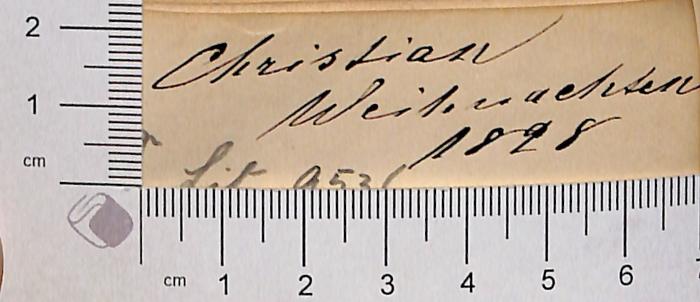 Christian
Weihnachten
1898
Lit
2
1
cm
cm 1 2 3 4 5 6